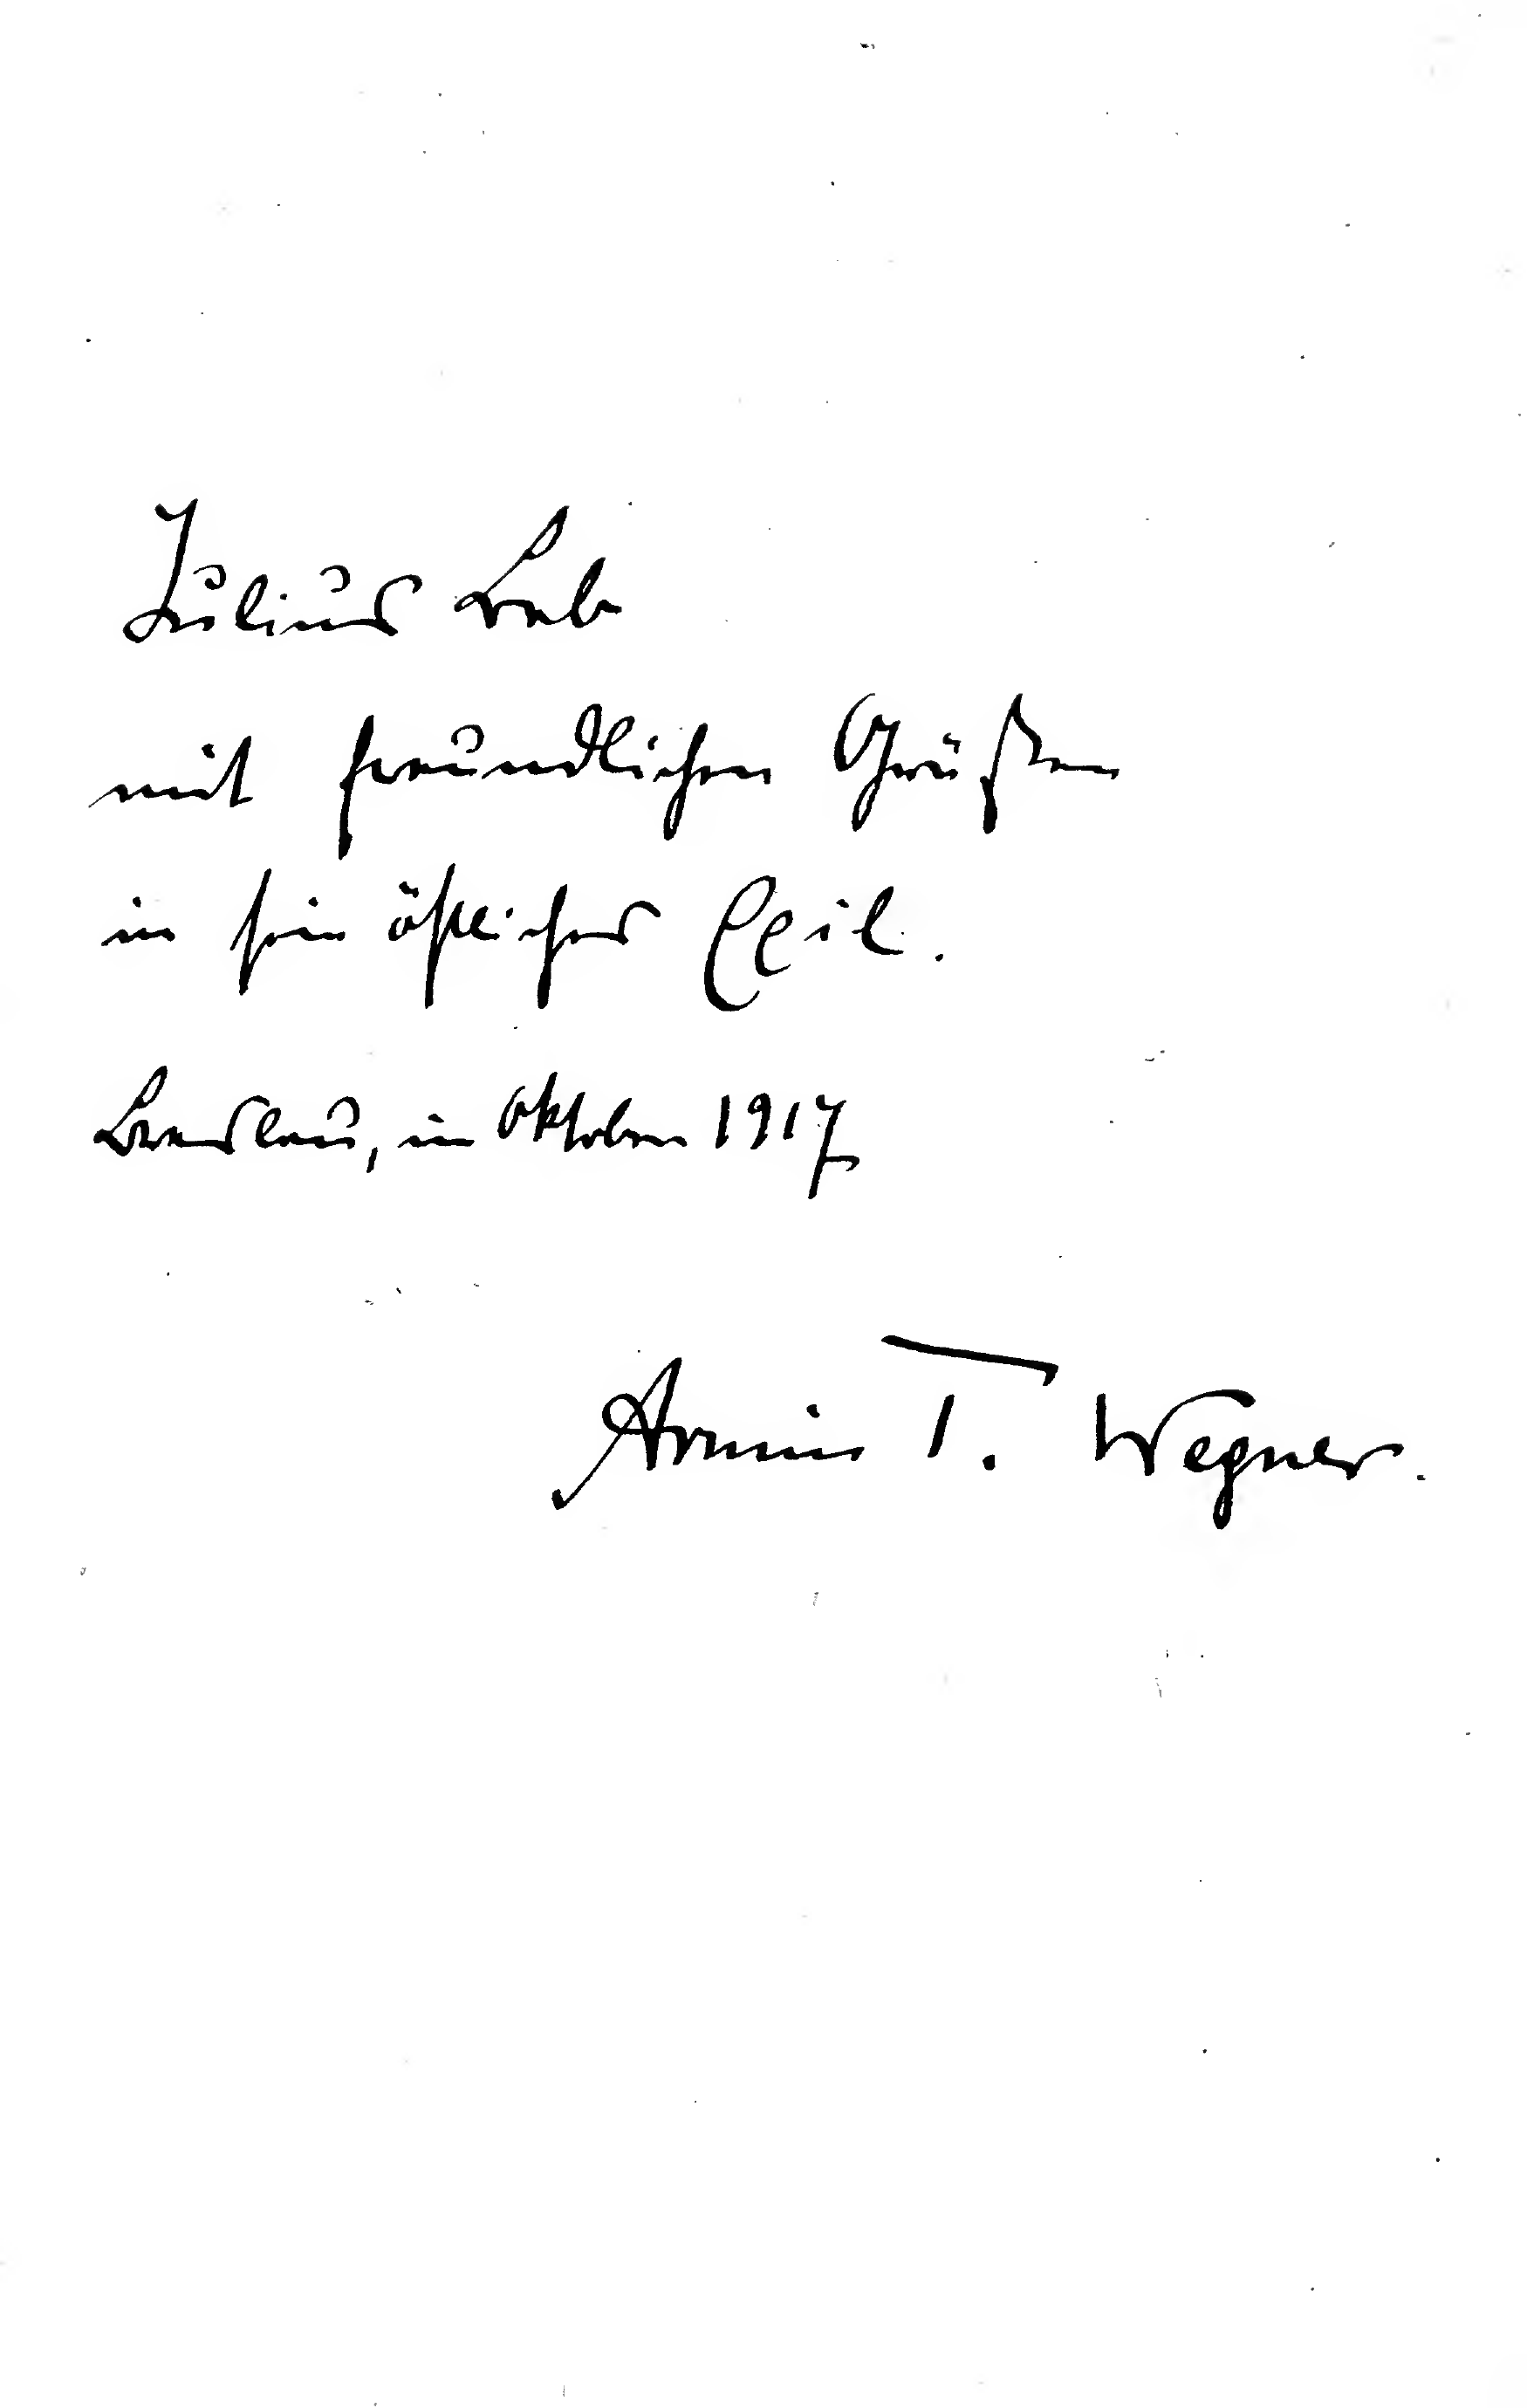 Julius Bab
mit freundlichen Grüßen
in sein östliches Exil.
Breslau, im Oktober 1917
Armin T. Wegner.